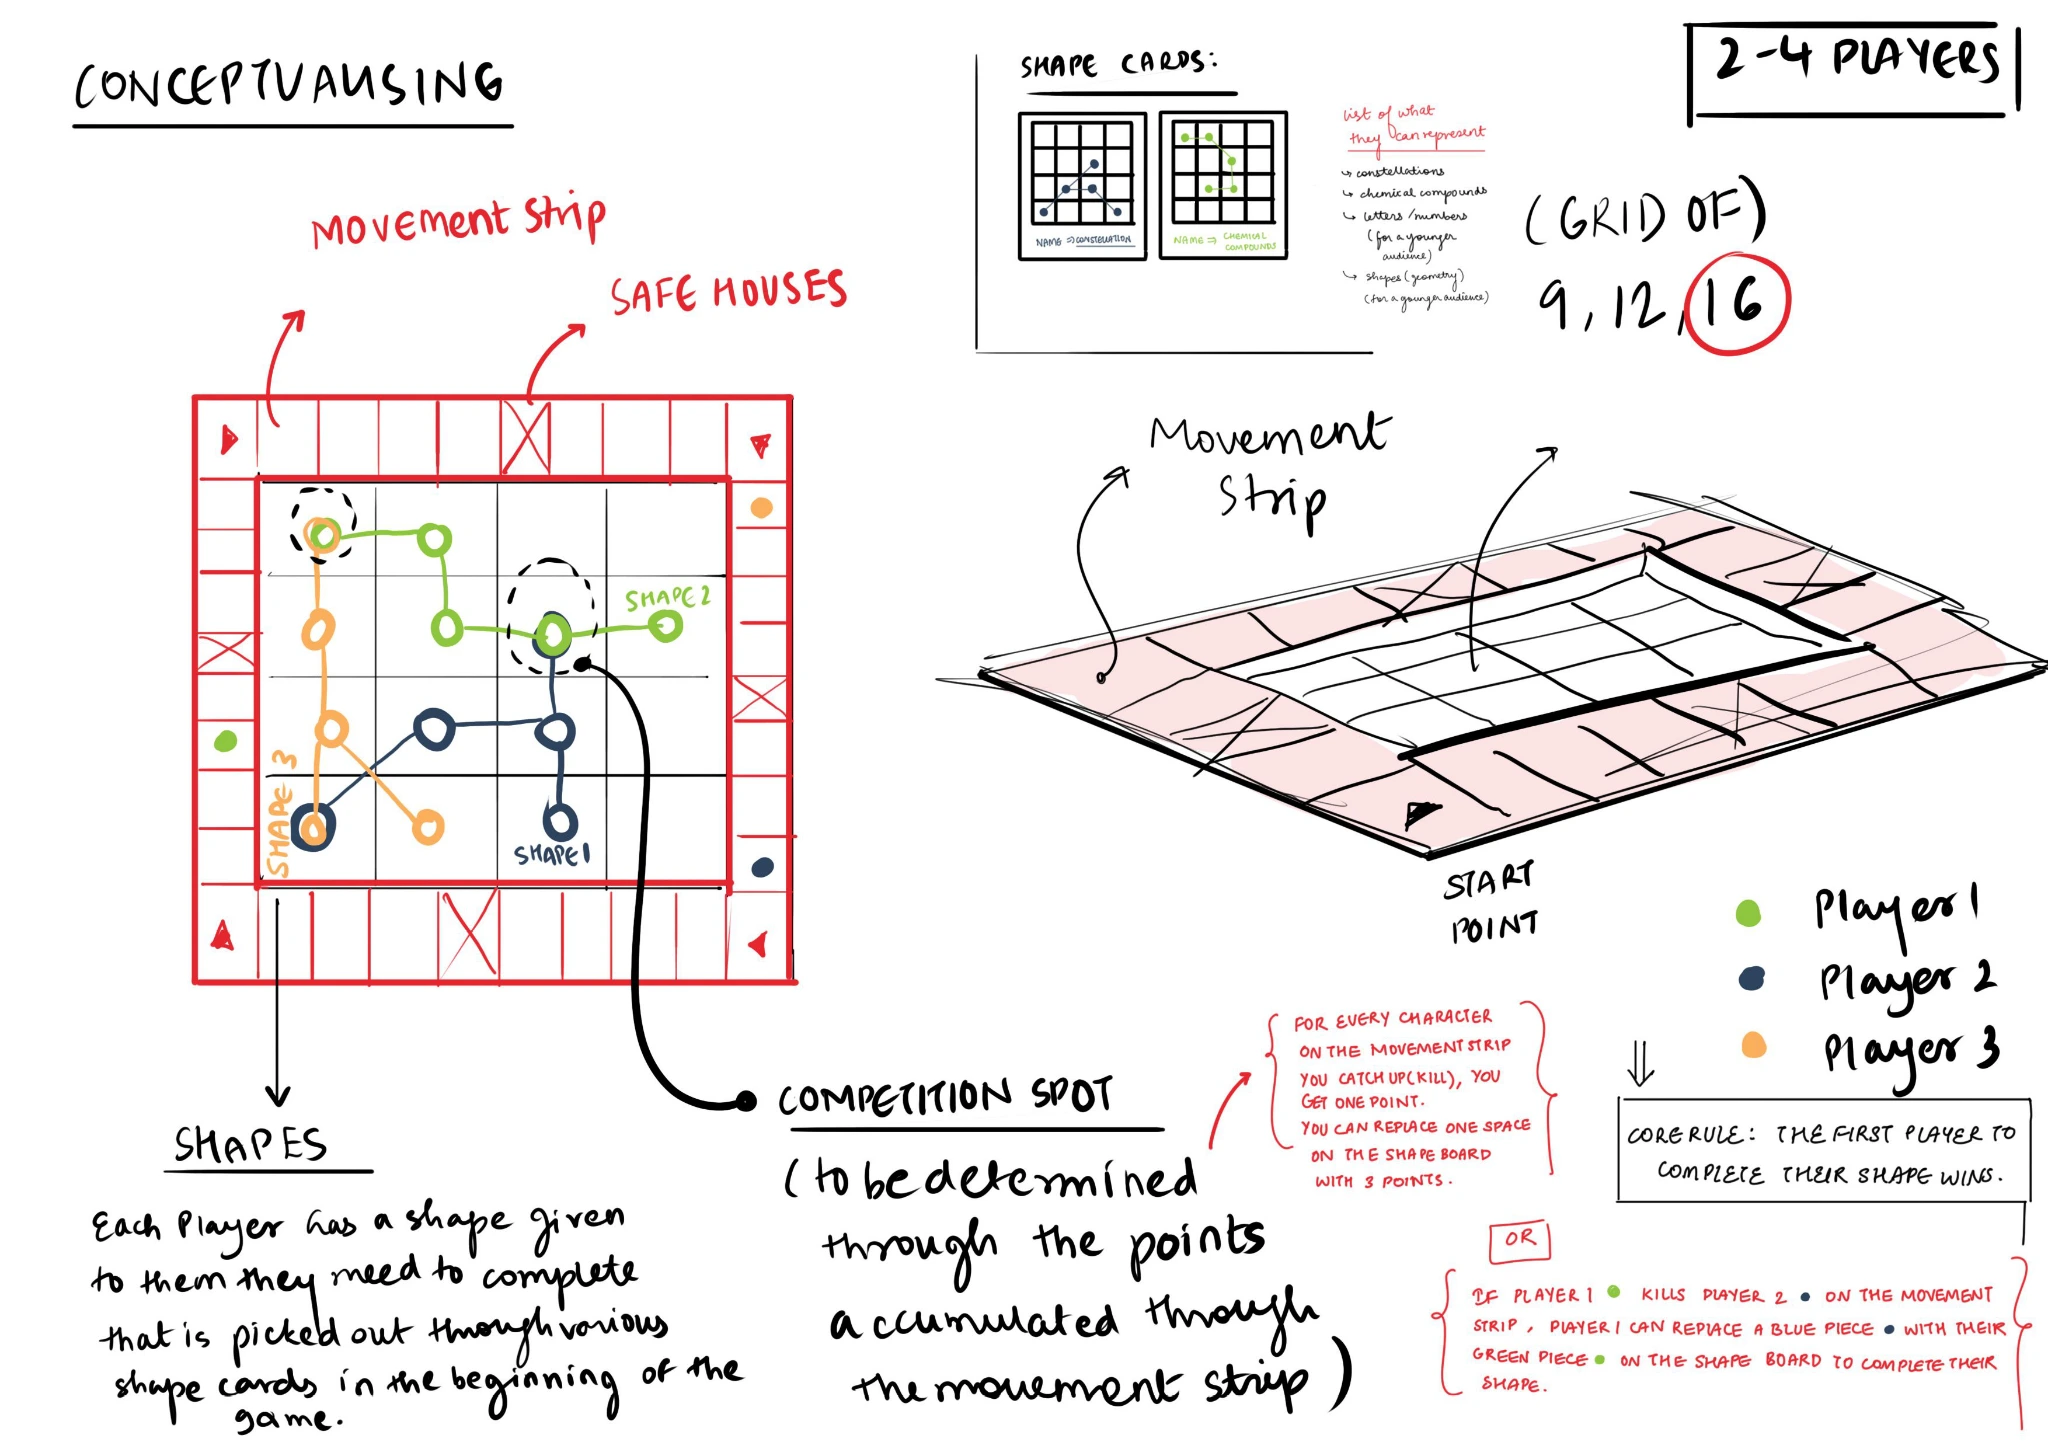 CONCEPTUALISING
SHAPE CARDS:
2-4 PLAYERS
NAME ⇒ CONSTELLATION
NAME ⇒ CHEMICAL
COMPOUNDS
List of what
they can represent
↳ constellations
↳ chemical compounds
↳ letters/numbers
(for a younger
audience)
↳ shapes (geometry)
(for a younger audience)
(GRID OF)
9, 12, 16
Movement Strip
SAFE HOUSES
SHAPE 2
SHAPE 3
SHAPE 1
Movement
Strip
START
POINT
Player 1
Player 2
Player 3
SHAPES
Each Player has a shape given
to them they need to complete
that is picked out through various
shape cards in the beginning of the
game.
COMPETITION SPOT
(to be determined
through the points
accumulated through
the movement strip)
FOR EVERY CHARACTER
ON THE MOVEMENT STRIP
YOU CATCH UP (KILL), YOU
GET ONE POINT.
YOU CAN REPLACE ONE SPACE
ON THE SHAPE BOARD
WITH 3 POINTS.
CORE RULE: THE FIRST PLAYER TO
COMPLETE THEIR SHAPE WINS.
OR
IF PLAYER 1 KILLS PLAYER 2 ON THE MOVEMENT
STRIP, PLAYER 1 CAN REPLACE A BLUE PIECE WITH THEIR
GREEN PIECE ON THE SHAPE BOARD TO COMPLETE THEIR
SHAPE.